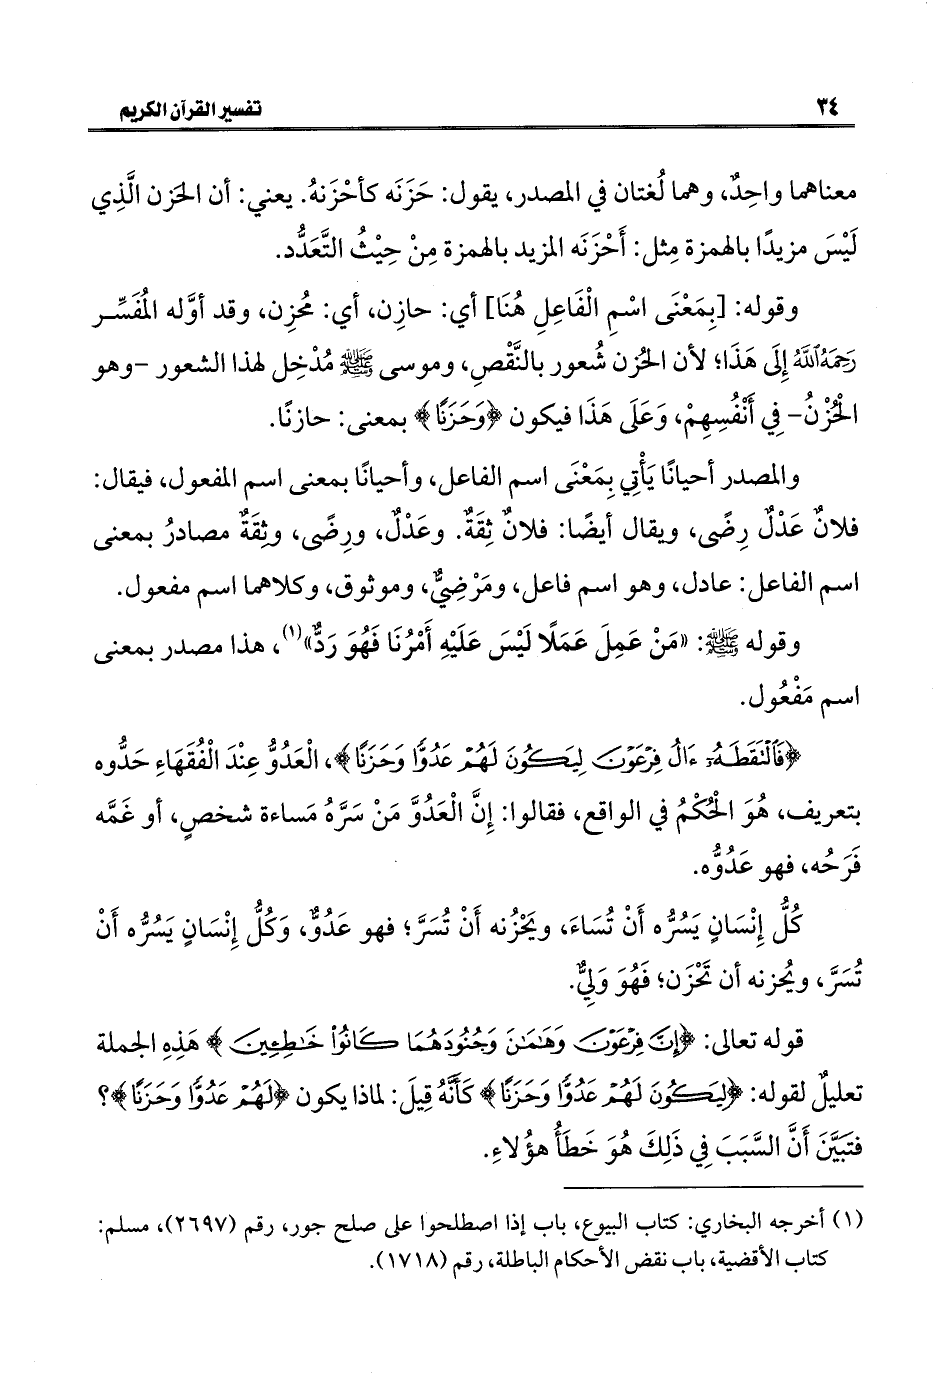 ٣٤
تفسير القرآن الكريم
معناهما واحِدٌ، وهما لُغتان في المصدر، يقول: حَزَنَه كأحْزَنهُ. يعني: أن الحَزن الَّذِي
لَيْسَ مزيدًا بالهمزة مِثل: أَحْزَنَه المزيد بالهمزة مِنْ حِيْثُ التَّعَدُّد.
وقوله: [بِمَعْنَى اسْمِ الْفَاعِلِ هُنَا] أي: حازِن، أي: مُحزِن، وقد أوَّله المُفَسِّر
رَحِمَهُ ٱللَّهُ إِلَى هَذَا؛ لأن الحُزن شُعور بالنَّقْصِ، وموسى ﷺ مُدْخِل لهذا الشعور -وهو
الحُزْنُ- فِي أَنْفُسِهِمْ، وَعَلَى هَذَا فيكون ﴿وَحَزَنًا﴾ بمعنى: حازنًا.
والمصدر أحيانًا يَأْتِي بِمَعْنَى اسم الفاعل، وأحيانًا بمعنى اسم المفعول، فيقال:
فلانٌ عَدْلٌ رِضًى، ويقال أيضًا: فلانٌ ثِقَةٌ. وعَدْلٌ، ورِضًى، وثِقَةٌ مصادرُ بمعنى
اسم الفاعل: عادل، وهو اسم فاعل، ومَرْضِيٌّ، وموثوق، وكلاهما اسم مفعول.
وقوله ﷺ: «مَنْ عَمِلَ عَمَلًا لَيْسَ عَلَيْهِ أَمْرُنَا فَهُوَ رَدٌّ»(١)، هذا مصدر بمعنى
اسم مَفْعُول.
﴿فَٱلْتَقَطَهُۥٓ ءَالُ فِرْعَوْنَ لِيَكُونَ لَهُمْ عَدُوًّا وَحَزَنًا﴾، الْعَدُوُّ عِنْدَ الْفُقَهَاءِ حَدُّوه
بتعريف، هُوَ الْحُكْمُ في الواقع، فقالوا: إِنَّ الْعَدُوَّ مَنْ سَرَّهُ مَساءة شخصٍ، أو غَمَّه
فَرَحُه، فهو عَدُوُّه.
كُلُّ إِنْسَانٍ يَسُرُّه أَنْ تُسَاءَ، ويَحْزُنه أَنْ تُسَرَّ؛ فهو عَدُوٌّ، وَكُلُّ إِنْسَانٍ يَسُرُّه أَنْ
تُسَرَّ، ويُحزنه أن تَحْزَن؛ فَهُوَ وَلِيٌّ.
قوله تعالى: ﴿إِنَّ فِرْعَوْنَ وَهَٰمَٰنَ وَجُنُودَهُمَا كَانُوا۟ خَٰطِـِٔينَ﴾ هَذِهِ الجملة
تعليلٌ لقوله: ﴿لِيَكُونَ لَهُمْ عَدُوًّا وَحَزَنًا﴾ كَأَنَّهُ قِيلَ: لماذا يكون ﴿لَهُمْ عَدُوًّا وَحَزَنًا﴾؟
فتَبَيَّنَ أَنَّ السَّبَبَ فِي ذَلِكَ هُوَ خَطَأُ هؤُلاءِ.
(١) أخرجه البخاري: كتاب البيوع، باب إذا اصطلحوا على صلح جور، رقم (٢٦٩٧)، مسلم:
كتاب الأقضية، باب نقض الأحكام الباطلة، رقم (١٧١٨).